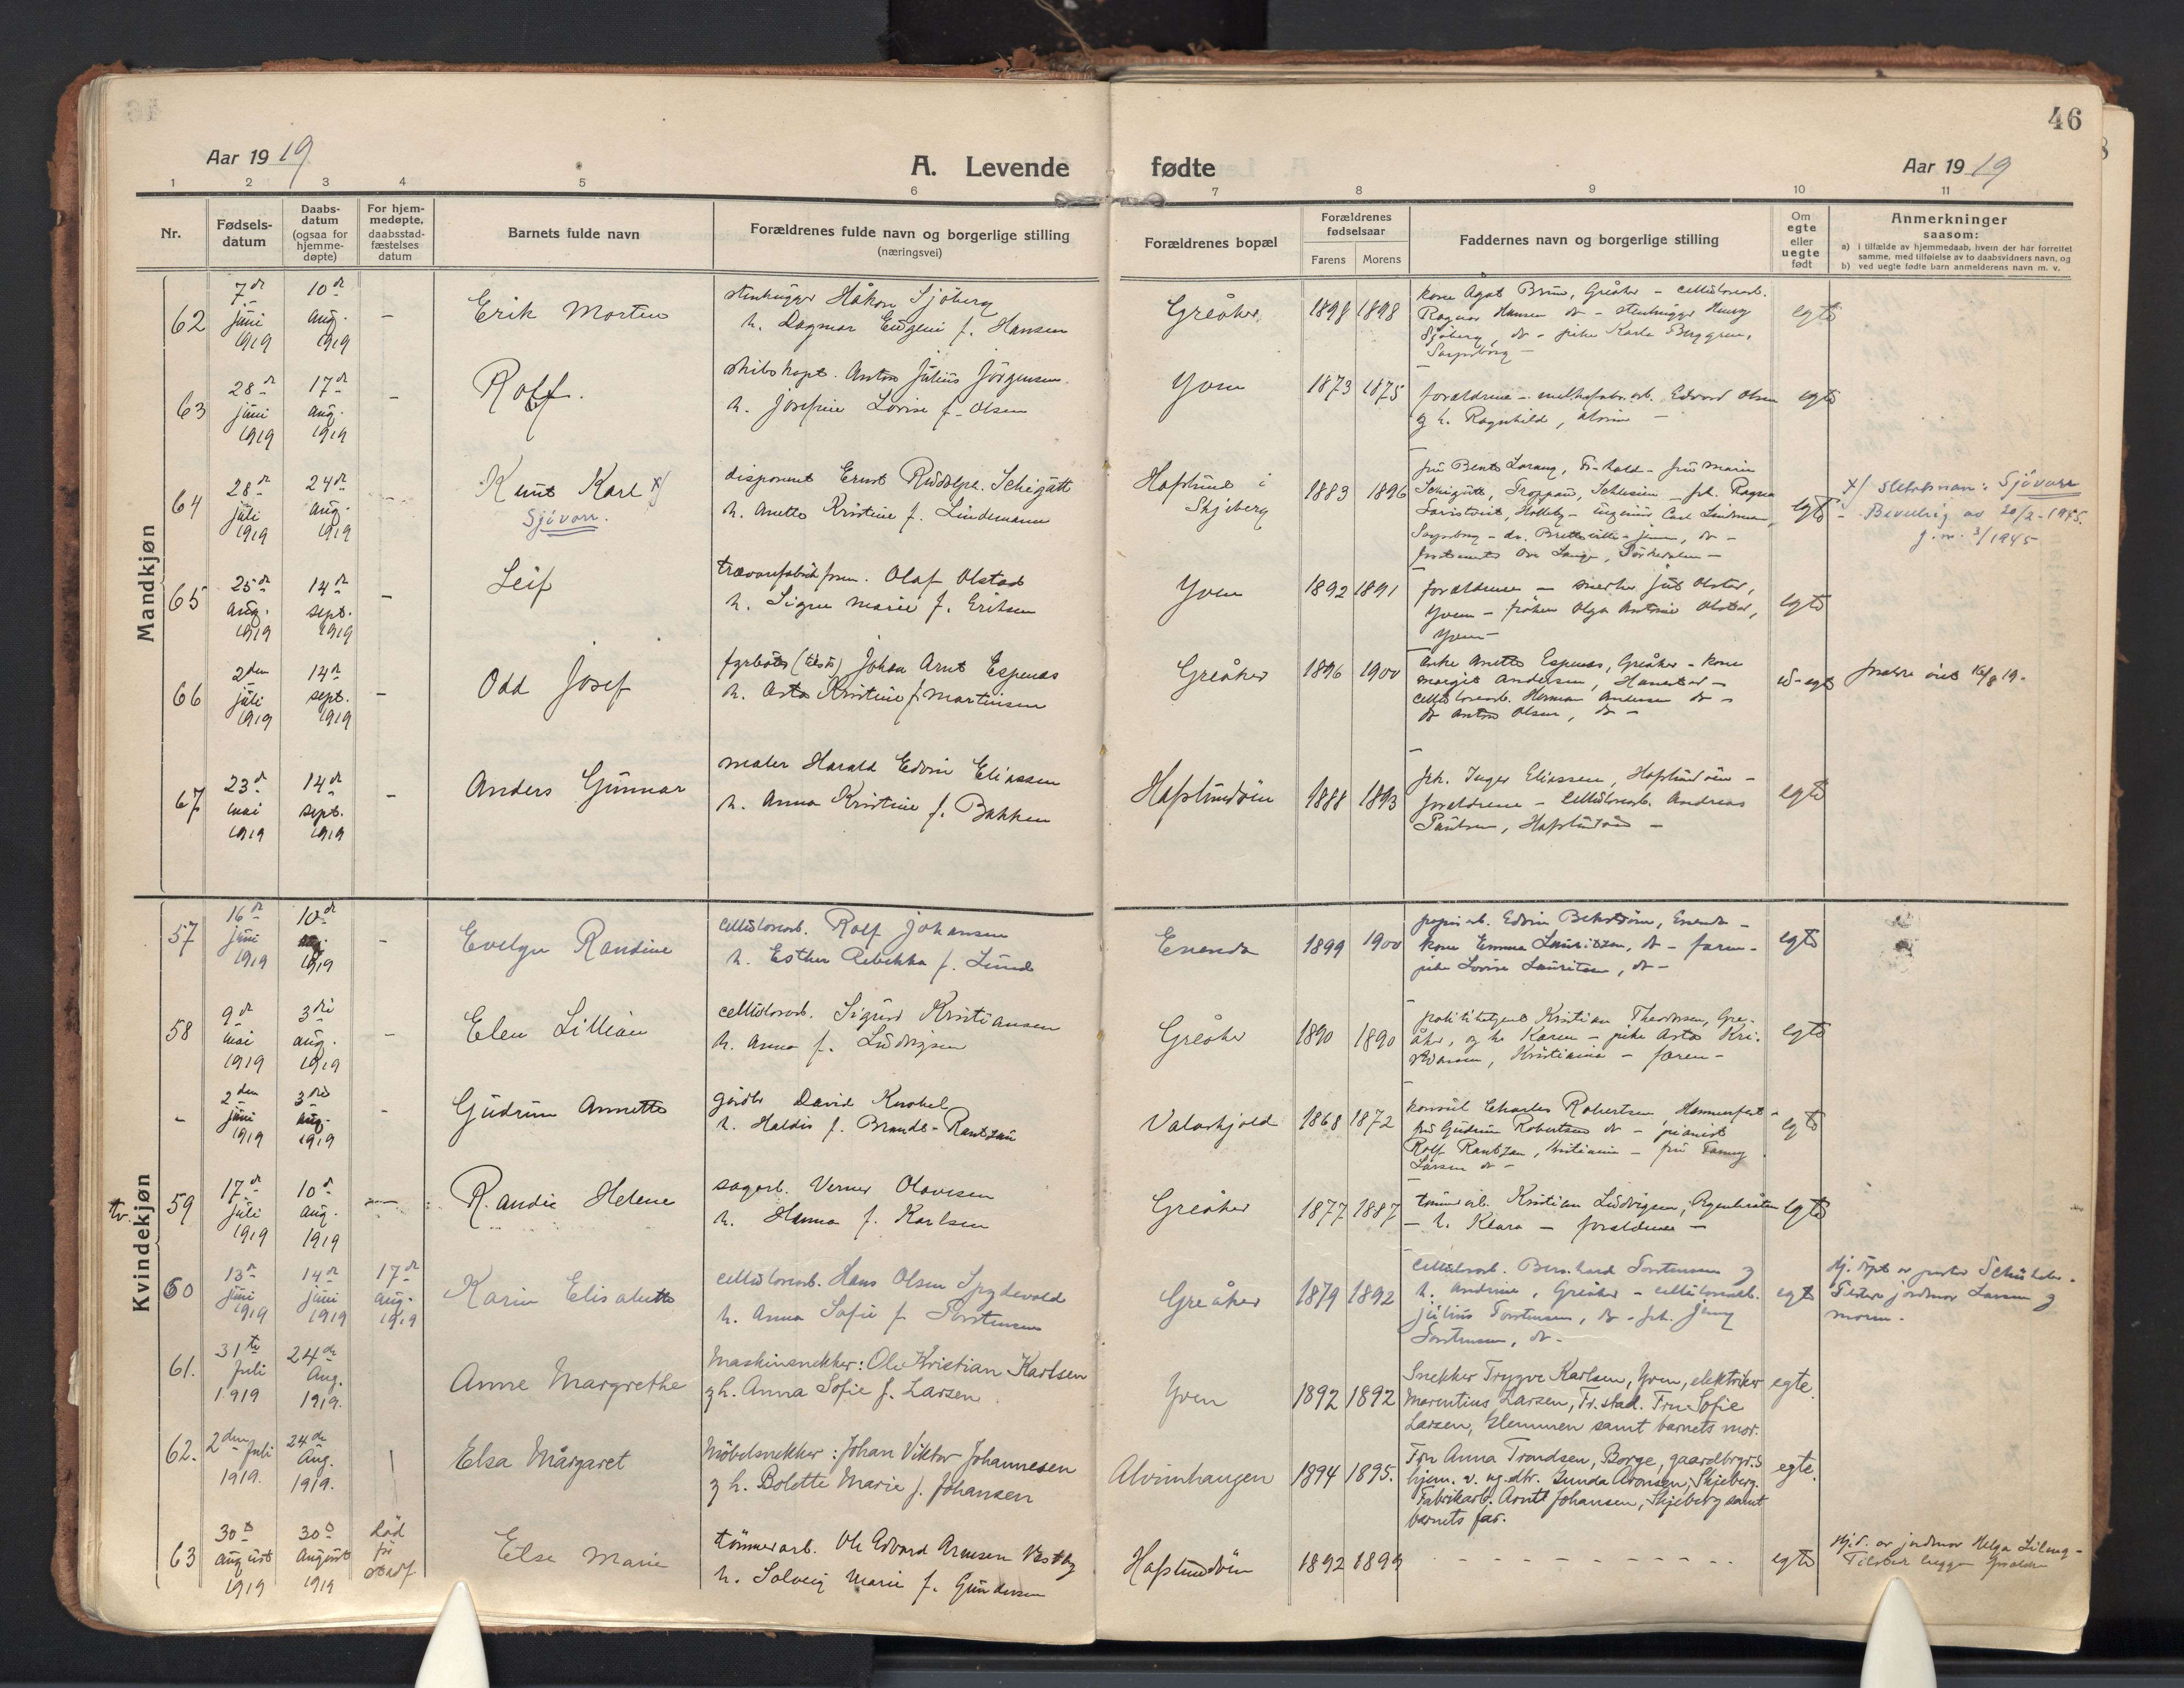 46
Aar 1919
A. Levende fødte
Aar 1919
1 2 3 4 5 6 7 8 9 10 11
Nr.
Fødsels-
datum
Daabs-
datum
(ogsaa for
hjemme-
døpte)
For hjem-
medøpte,
daabsstad-
fæstelses
datum
Barnets fulde navn
Forældrenes fulde navn og borgerlige stilling
(næringsvei)
Forældrenes bopæl
Forældrenes
fødselsaar
Farens Morens
Faddernes navn og borgerlige stilling
Om
egte
eller
uegte
født
Anmerkninger
saasom:
a) i tilfælde av hjemmedaab, hvem der har forrettet
samme, med tilføielse av to daabsvidners navn, og
b) ved uegte fødte barn anmelderens navn m. v.
Mandkjøn
62
7de juni 1919
10de aug. 1919
-
Erik Morten
stenhugger Håkon Sjöberg
h. Dagmar Eugenie f. Hansen
Greåker
1898 1898
kone Agot Bruu, Greåker - cellulosearb.
Ragnar Hansen do - stenhugger Henry
Sjöberg, do - pike Karla Berggren,
Sarpsborg -
egte
63
28de juni 1919
17de aug. 1919
-
Rolf.
skibskapt. Anton Julius Jörgensen
h. Josefine Lovise f. Olsen
Yven
1873 1875
forældrene - Edvard Olsen
og h. Ragnhild, Alvim -
egte
64
28de juli 1919
24de aug. 1919
Knut Karl x)
Sjövorr.
disponent Ernst Rudolph Schigütt
h. Anette Kristine f. Lindemann
Hafslund i
Skjeberg
1883 1896
fru Marie
Schigütt, Troppau, Schlesien - frk. Ragna
ingeniör Carl Lindemann,
Sarpsborg
egte
x/ Slektsnavn: Sjövorr
- Bevilling av 20/2-1945.
j.nr. 3/1945
65
25de aug. 1919
14de sept. 1919
-
Leif
trævarefabrik Olaf Olstad
h. Signe Marie f. Eriksen
Yven
1892 1891
forældrene - Olstad,
Yven - fröken Olga Antonie Olstad,
Yven -
egte
66
2den juli 1919
14de sept. 1919
-
Odd Josef
fyrböter Johan Arnt Espenes
h. Asta Kristine f. Martinsen
Greåker
1896 1900
enke Anette Espenes, Greåker - kone
Margit Andersen,
cellulosearb. Herman Andersen do -
do Anton Olsen, do -
u-egte
foreldre viet 16/8 19.
67
23de mai 1919
14de sept. 1919
-
Anders Gunnar
maler Harald Edvin Eliassen
h. Anna Kristine f. Bakken
Hafslundöen
1888 1893
frk. Inger Eliassen, Hafslundöen -
forældrene - cellulosearb. Andreas
Paulsen, Hafslundöen -
egte
Kvindekjøn
57
16de juni 1919
10de aug. 1919
-
Evelyn Randine
cellulosearb. Rolf Johansen
h. Esther Rebekka f. Lund
Enenda
1899 1900
papirarb. Edvin Enenda -
kone Emma Lauritzen, do - faren -
pike Lovise Lauritzen, do -
egte
58
9de mai 1919
3die aug. 1919
-
Elen Lillian
cellulosearb. Sigurd Kristiansen
h. Anna f. Ludvigsen
Greåker
1890 1890
politibetjent Kristian Theodorsen, Gre-
åker, og h. Karen - pike Asta Kri-
stiansen, Kristiania - faren -
egte
-
2den juni 1919
3die aug. 1919
-
Gudrun Annette
David Knobel
h. Haldis f. Brandt-Rantzau
Valaskjold
1868 1872
konsul Charles Robertson, Hammerfest -
fru Gudrun Robertson do - pianist
Rolf Rantzau, Kristiania - fru Fanny
Larsen do -
egte
tv. 59
17de juli 1919
10de aug. 1919
Randie Helene
sagarb. Verner Olavesen
h. Hanna f. Karlsen
Greåker
1877 1887
tömmerarb. Kristian Ludvigsen,
- h. Klara - forældrene -
egte
60
13de juni 1919
14de juni 1919
17de aug. 1919
Karin Elisabeth
cellulosearb. Hans Olsen Spydevold
h. Anna Sofie f. Torstensen
Greåker
1879 1892
cellulosearb. Bernhard Torstensen og
h. Andrine, Greåker - cellulosearb.
Julius Torstensen, do - frk. Jenny
Torstensen, do -
egte
Hj. döpt av
jordmor Larsen og
moren.
61.
31te Juli 1919
24de Aug. 1919.
Anne Margrethe
Maskinsnekker: Ole Kristian Karlsen
og h. Anna Sofie f. Larsen.
Yven
1892 1892
Snekker Trygve Karlsen, Yven, elektriker
Marentius Larsen, Fr.stad. Fru Sofie
Larsen, Glemmen samt barnets mor.
egte.
62.
2den Juli 1919.
24de Aug. 1919.
Elsa Margaret
Möbelsnekker: Johan Viktor Johannesen
og h. Bolette Marie f. Johansen
Alvimhaugen
1894 1895.
Fru Anna Trondsen, Borge, gaardbrgr.s
hjem. v. ug. dtr. Gunda Aronsen, Skjeberg.
Fabrikarb. Arnt Johansen, Skjeberg samt
barnets far.
egte.
63
30te august 1919
30te August 1919
död för stadf.
Else Marie
tömmerarb. Ole Edvard Arnesen Vestby
h. Solveig Marie f. Gundersen
Hafslundöen
1892 1899
- - - - - - - - -
egte
Hj.d. av jordmor Helga